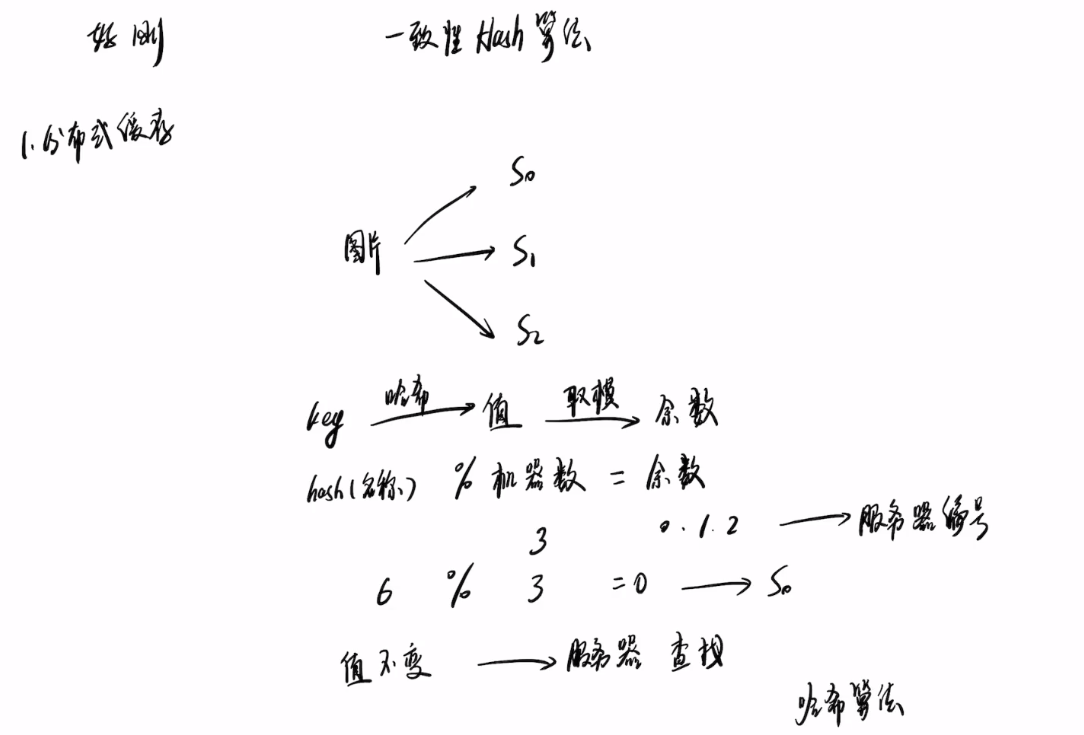 好刚 一致性Hash算法
1.分布式缓存
S0
图片 S1
S2
key 哈希 值 取模 余数
hash(名称) % 机器数 = 余数
3 0.1.2 服务器编号
6 % 3 =0 S0
值不变 服务器 查找
哈希算法